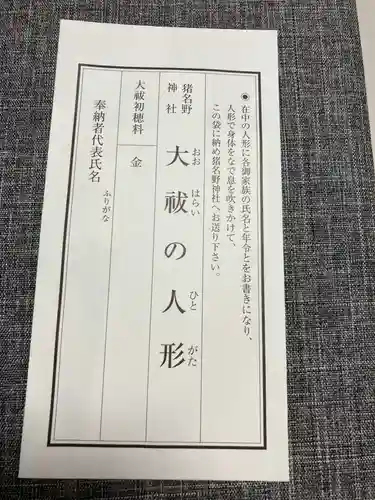 ◉在中の人形に各御家族の氏名と年令とをお書きになり、
人形で身体をなで息を吹きかけて、
この袋に納め猪名野神社へお送り下さい。
猪名野
神社
大祓の人形
おお はらい ひと がた
大祓初穂料
金
奉納者代表氏名
ふりがな